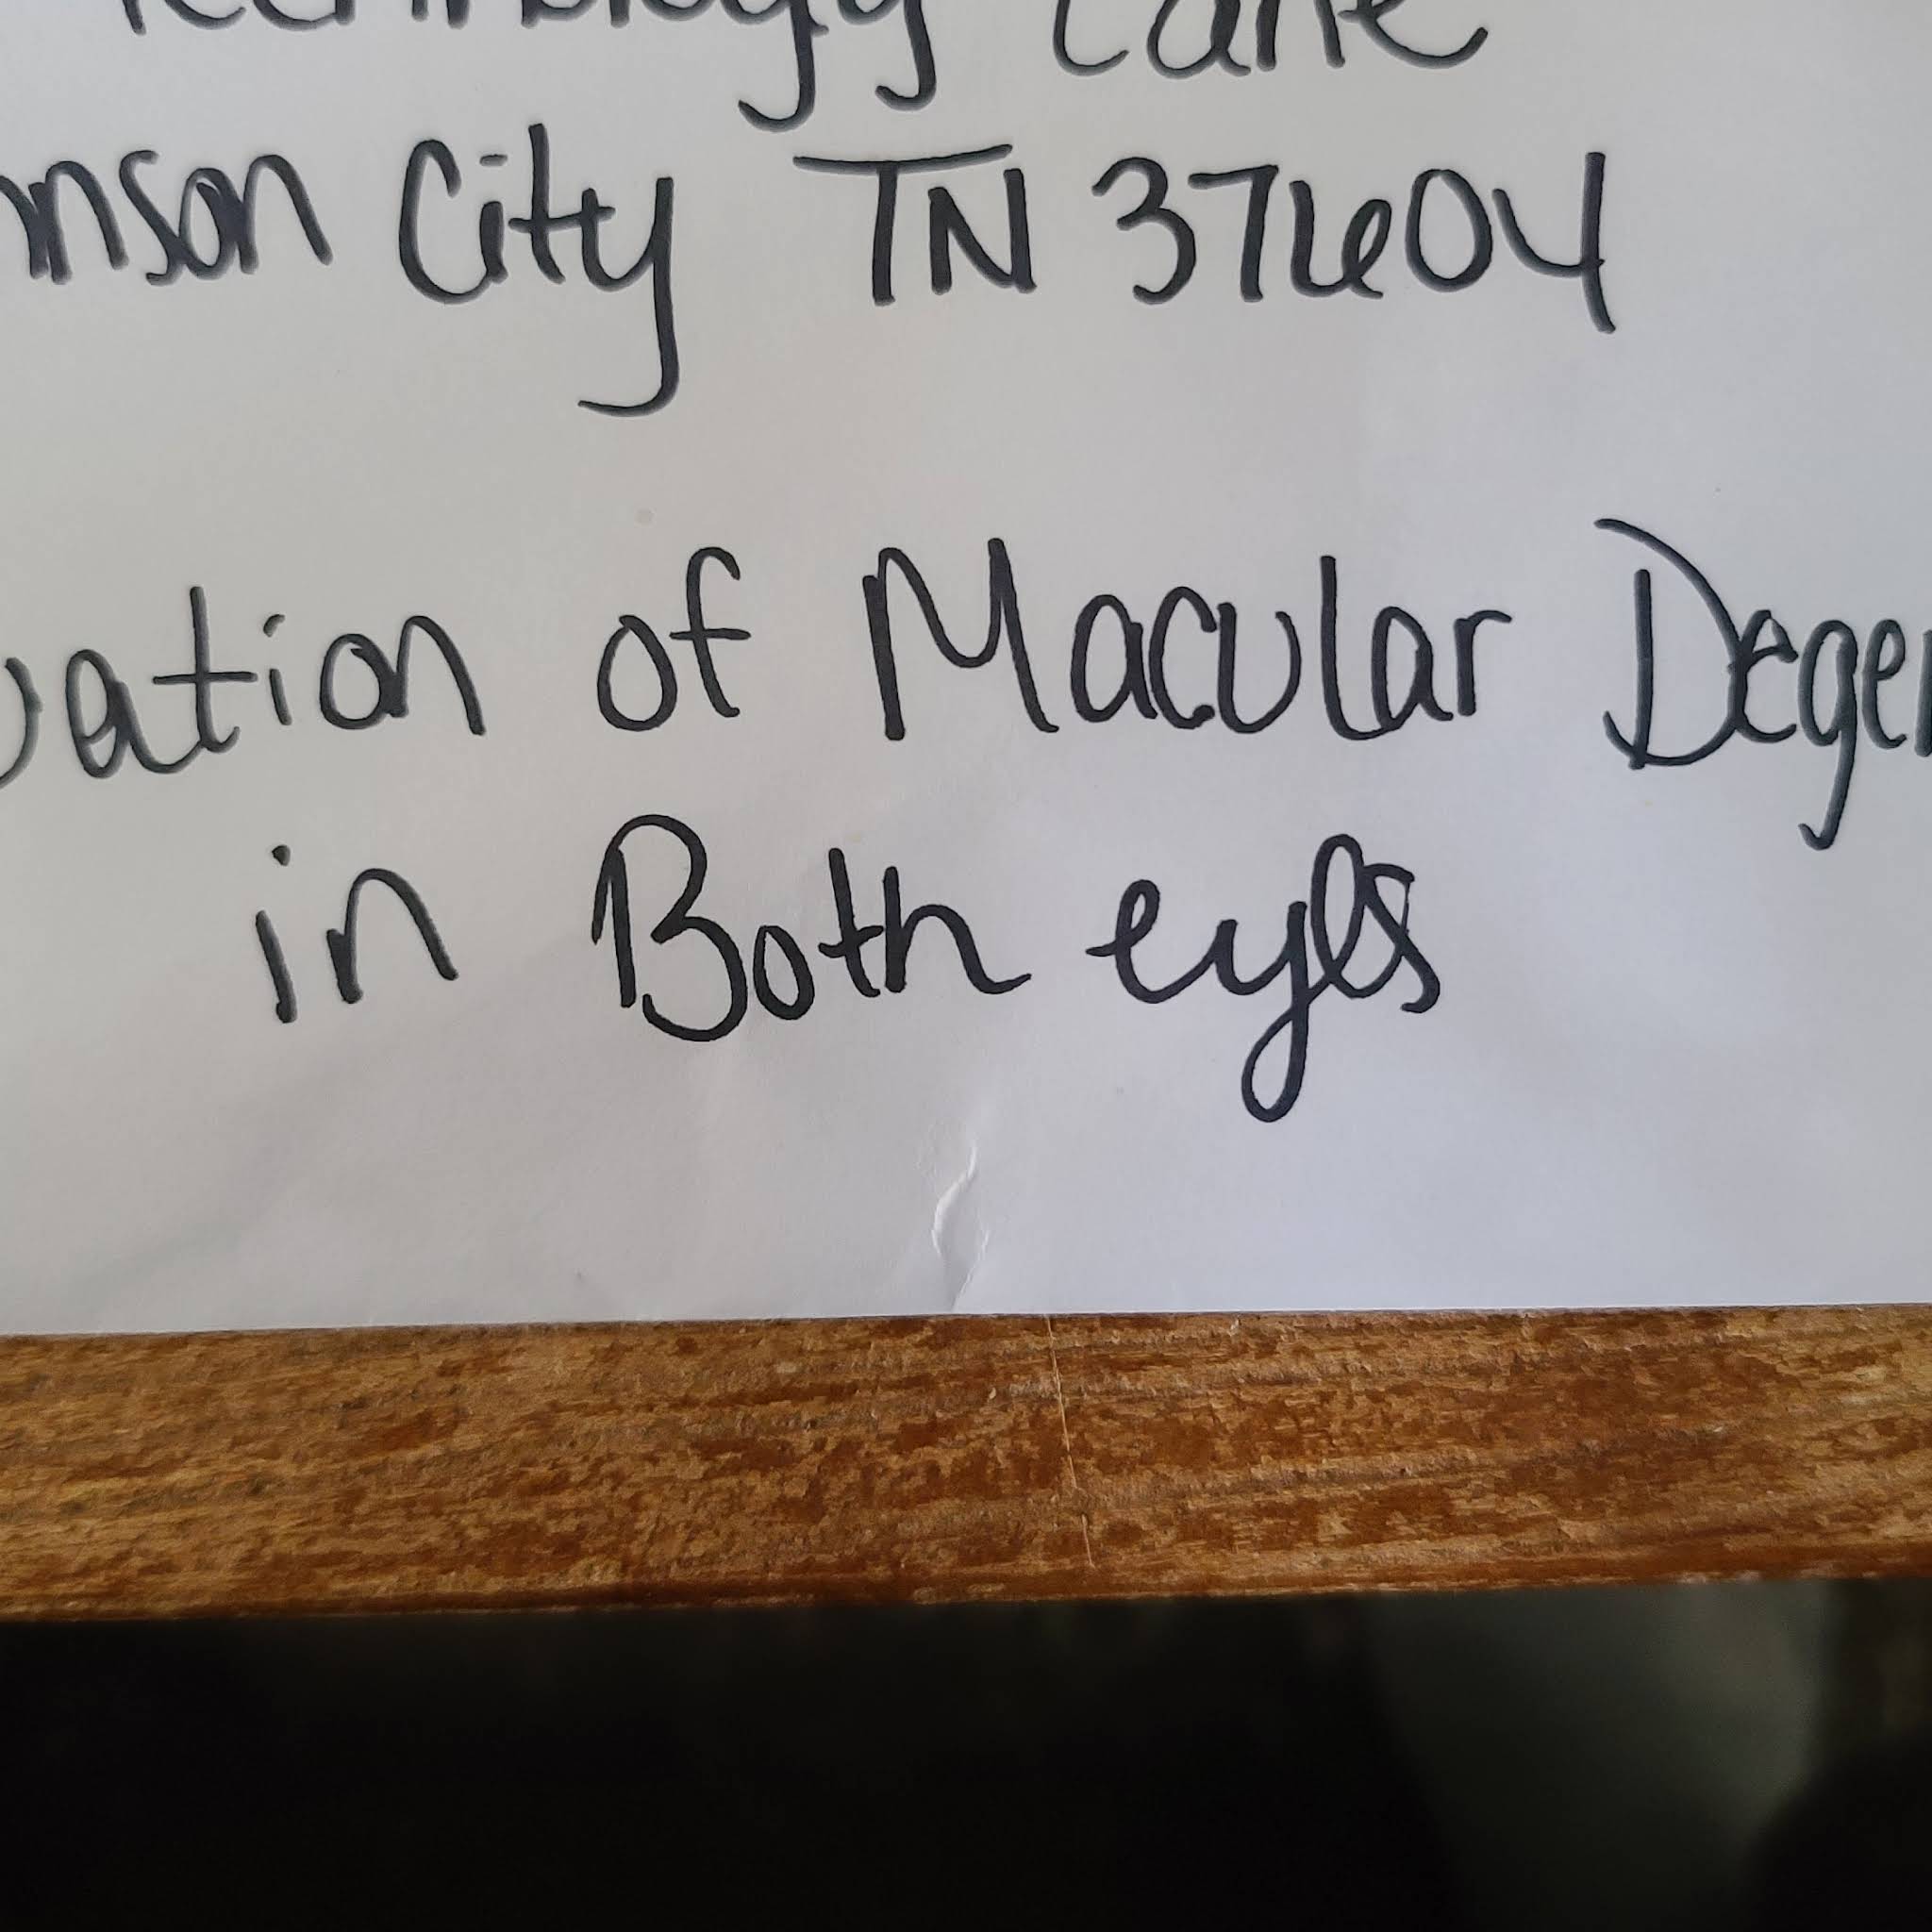 Technology Lane
nson City TN 37604
uation of Macular Degen
in Both eyes